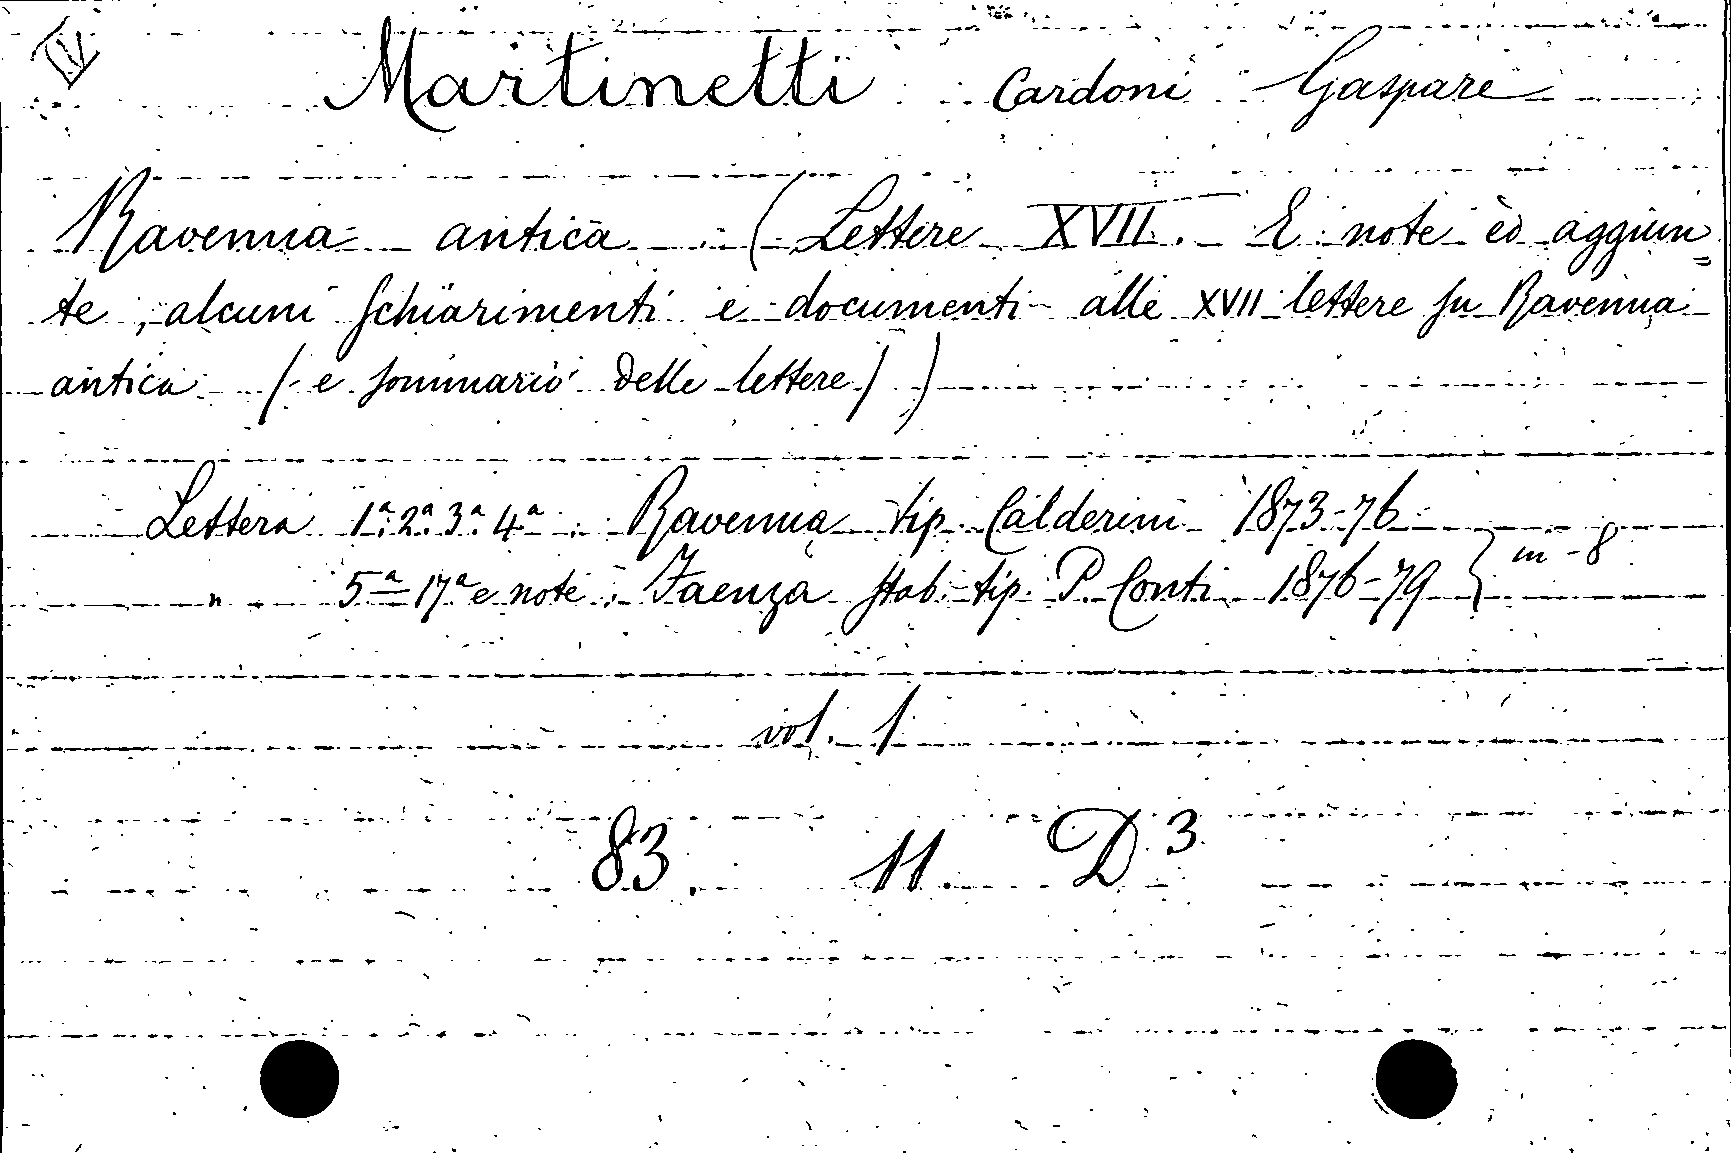 IV
Martinetti Cardoni Gaspare
Ravenna antica (Lettere XVII. E note ed aggiun=
te, alcuni schiarimenti e documenti alle XVII lettere su Ravenna
antica (e sommario delle lettere))
Lettera 1ª. 2ª. 3ª. 4ª. Ravenna tip. Calderini 1873-76
" 5ª-17ª e note. Faenza stab. tip. P. Conti 1876-79 } in-8
vol. 1
83. 11. D³